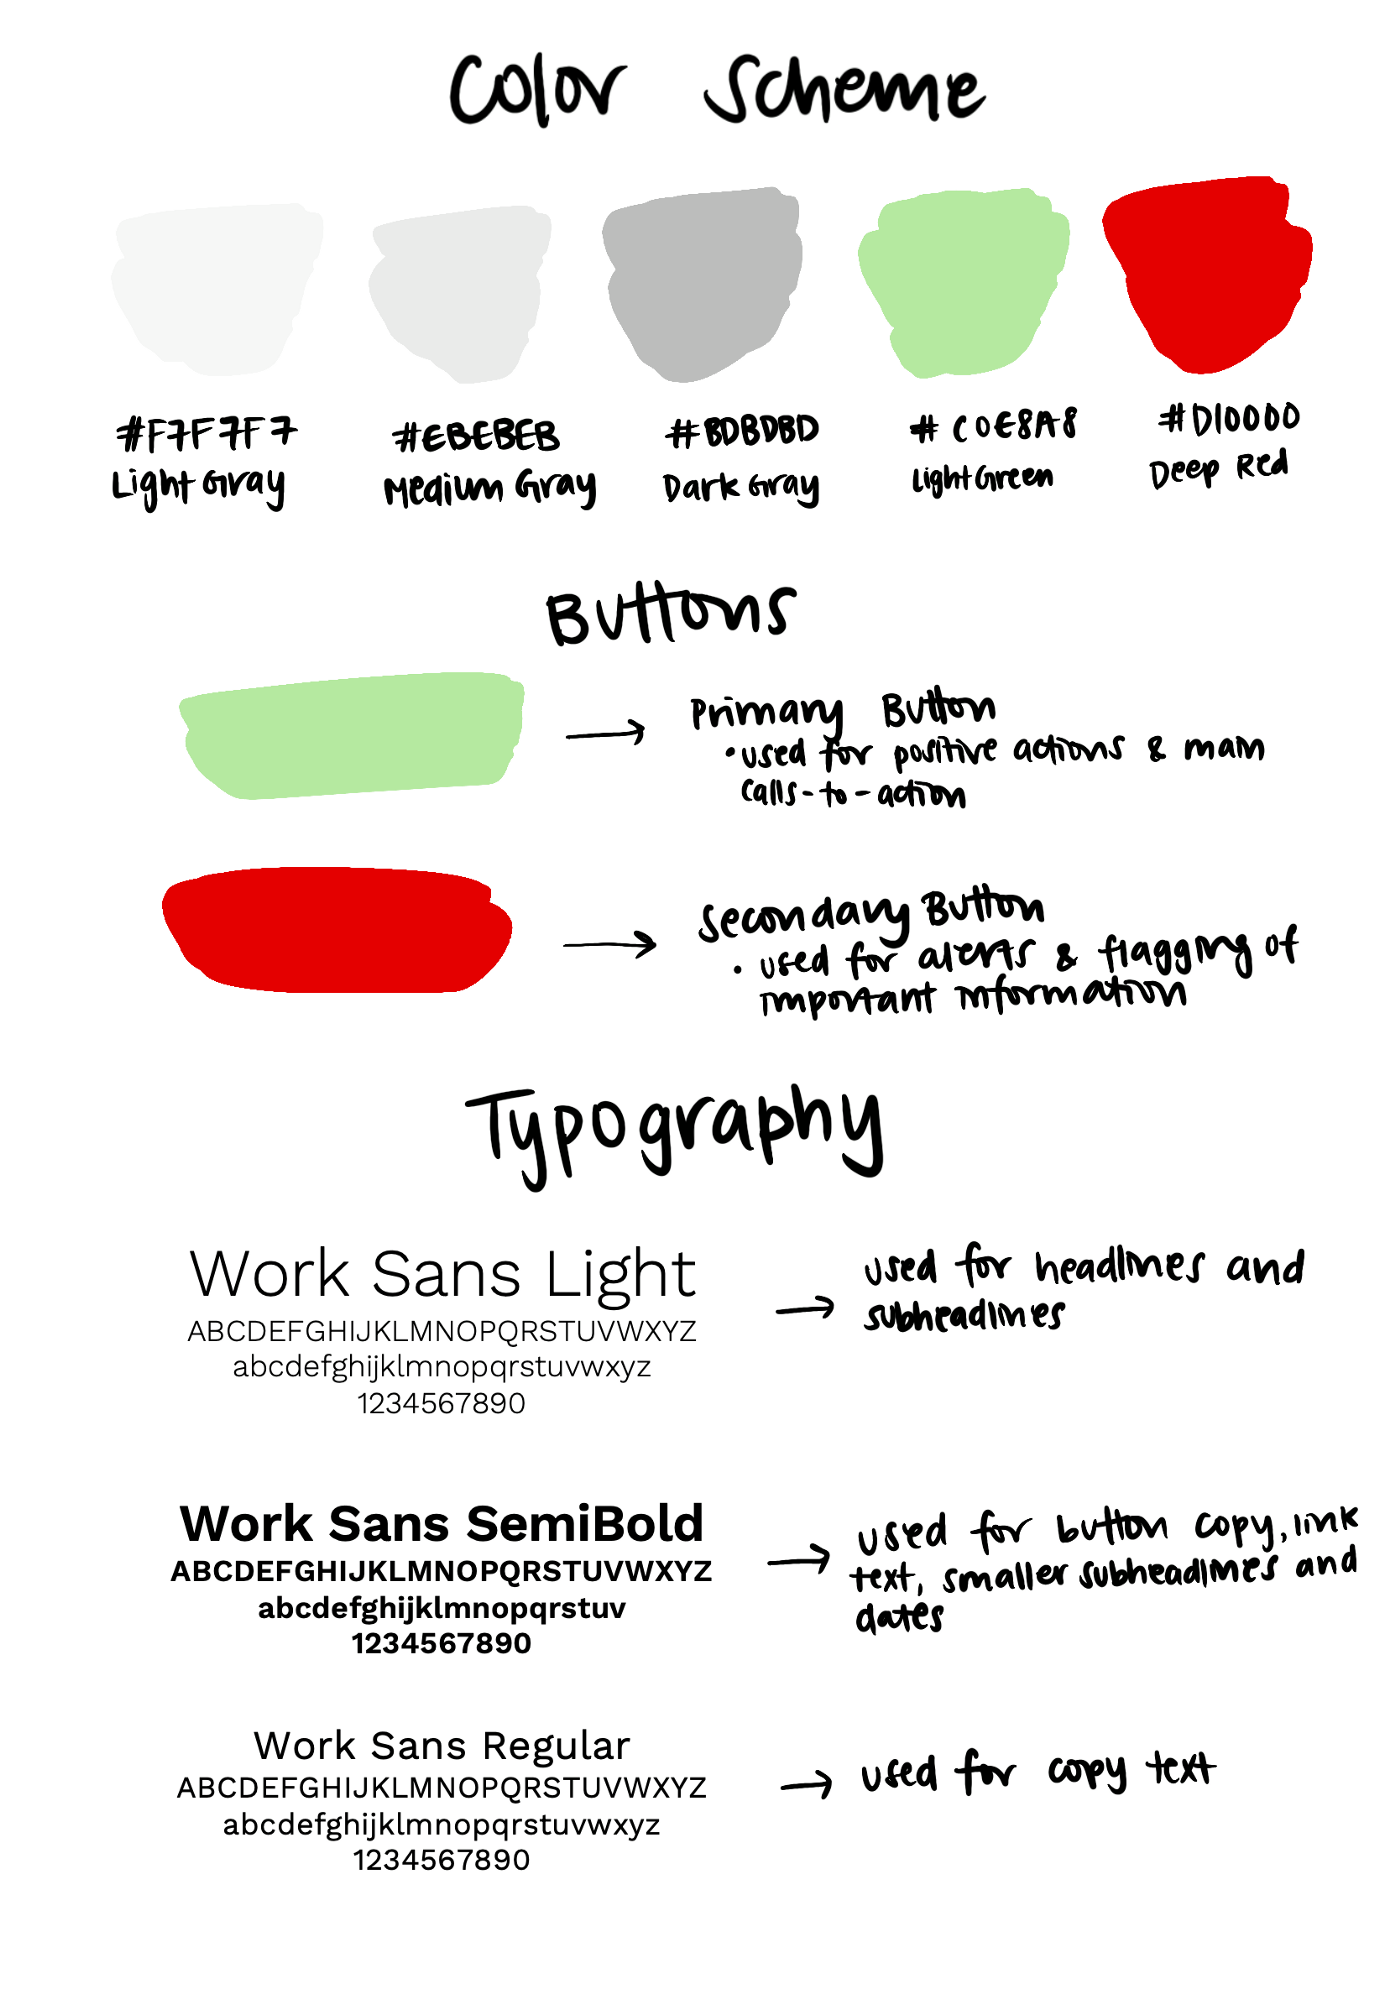 Color Scheme
#F7F7F7 #EBEBEB #BDBDBD #C0E8A8 #D10000
Light Gray Medium Gray Dark Gray Light Green Deep Red
Buttons
Primary Button
• used for positive actions & main
calls-to-action
Secondary Button
• used for alerts & flagging of
important information
Typography
Work Sans Light
ABCDEFGHIJKLMNOPQRSTUVWXYZ
abcdefghijklmnopqrstuvwxyz
1234567890
→ used for headlines and
subheadlines
Work Sans SemiBold
ABCDEFGHIJKLMNOPQRSTUVWXYZ
abcdefghijklmnopqrstuv
1234567890
→ used for button copy, link
text, smaller subheadlines and
dates
Work Sans Regular
ABCDEFGHIJKLMNOPQRSTUVWXYZ
abcdefghijklmnopqrstuvwxyz
1234567890
→ used for copy text